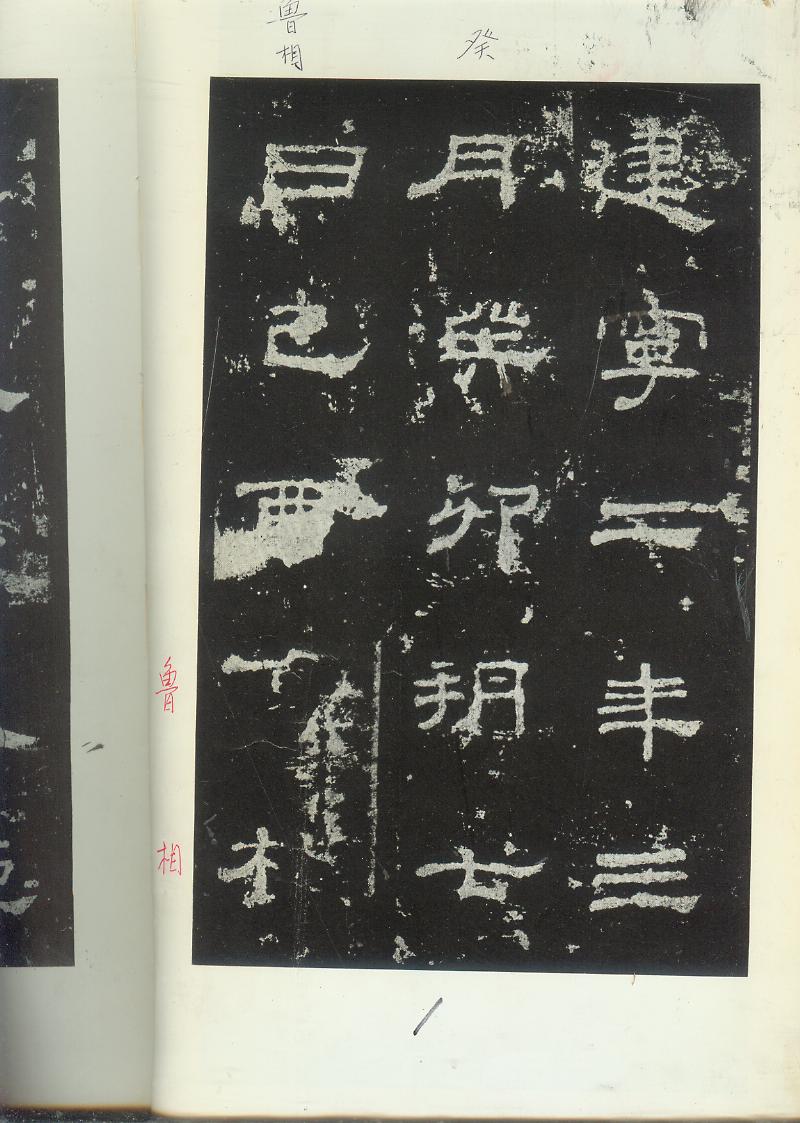 癸
魯相
建寧二年三
月癸卯朔七
日己酉
魯相